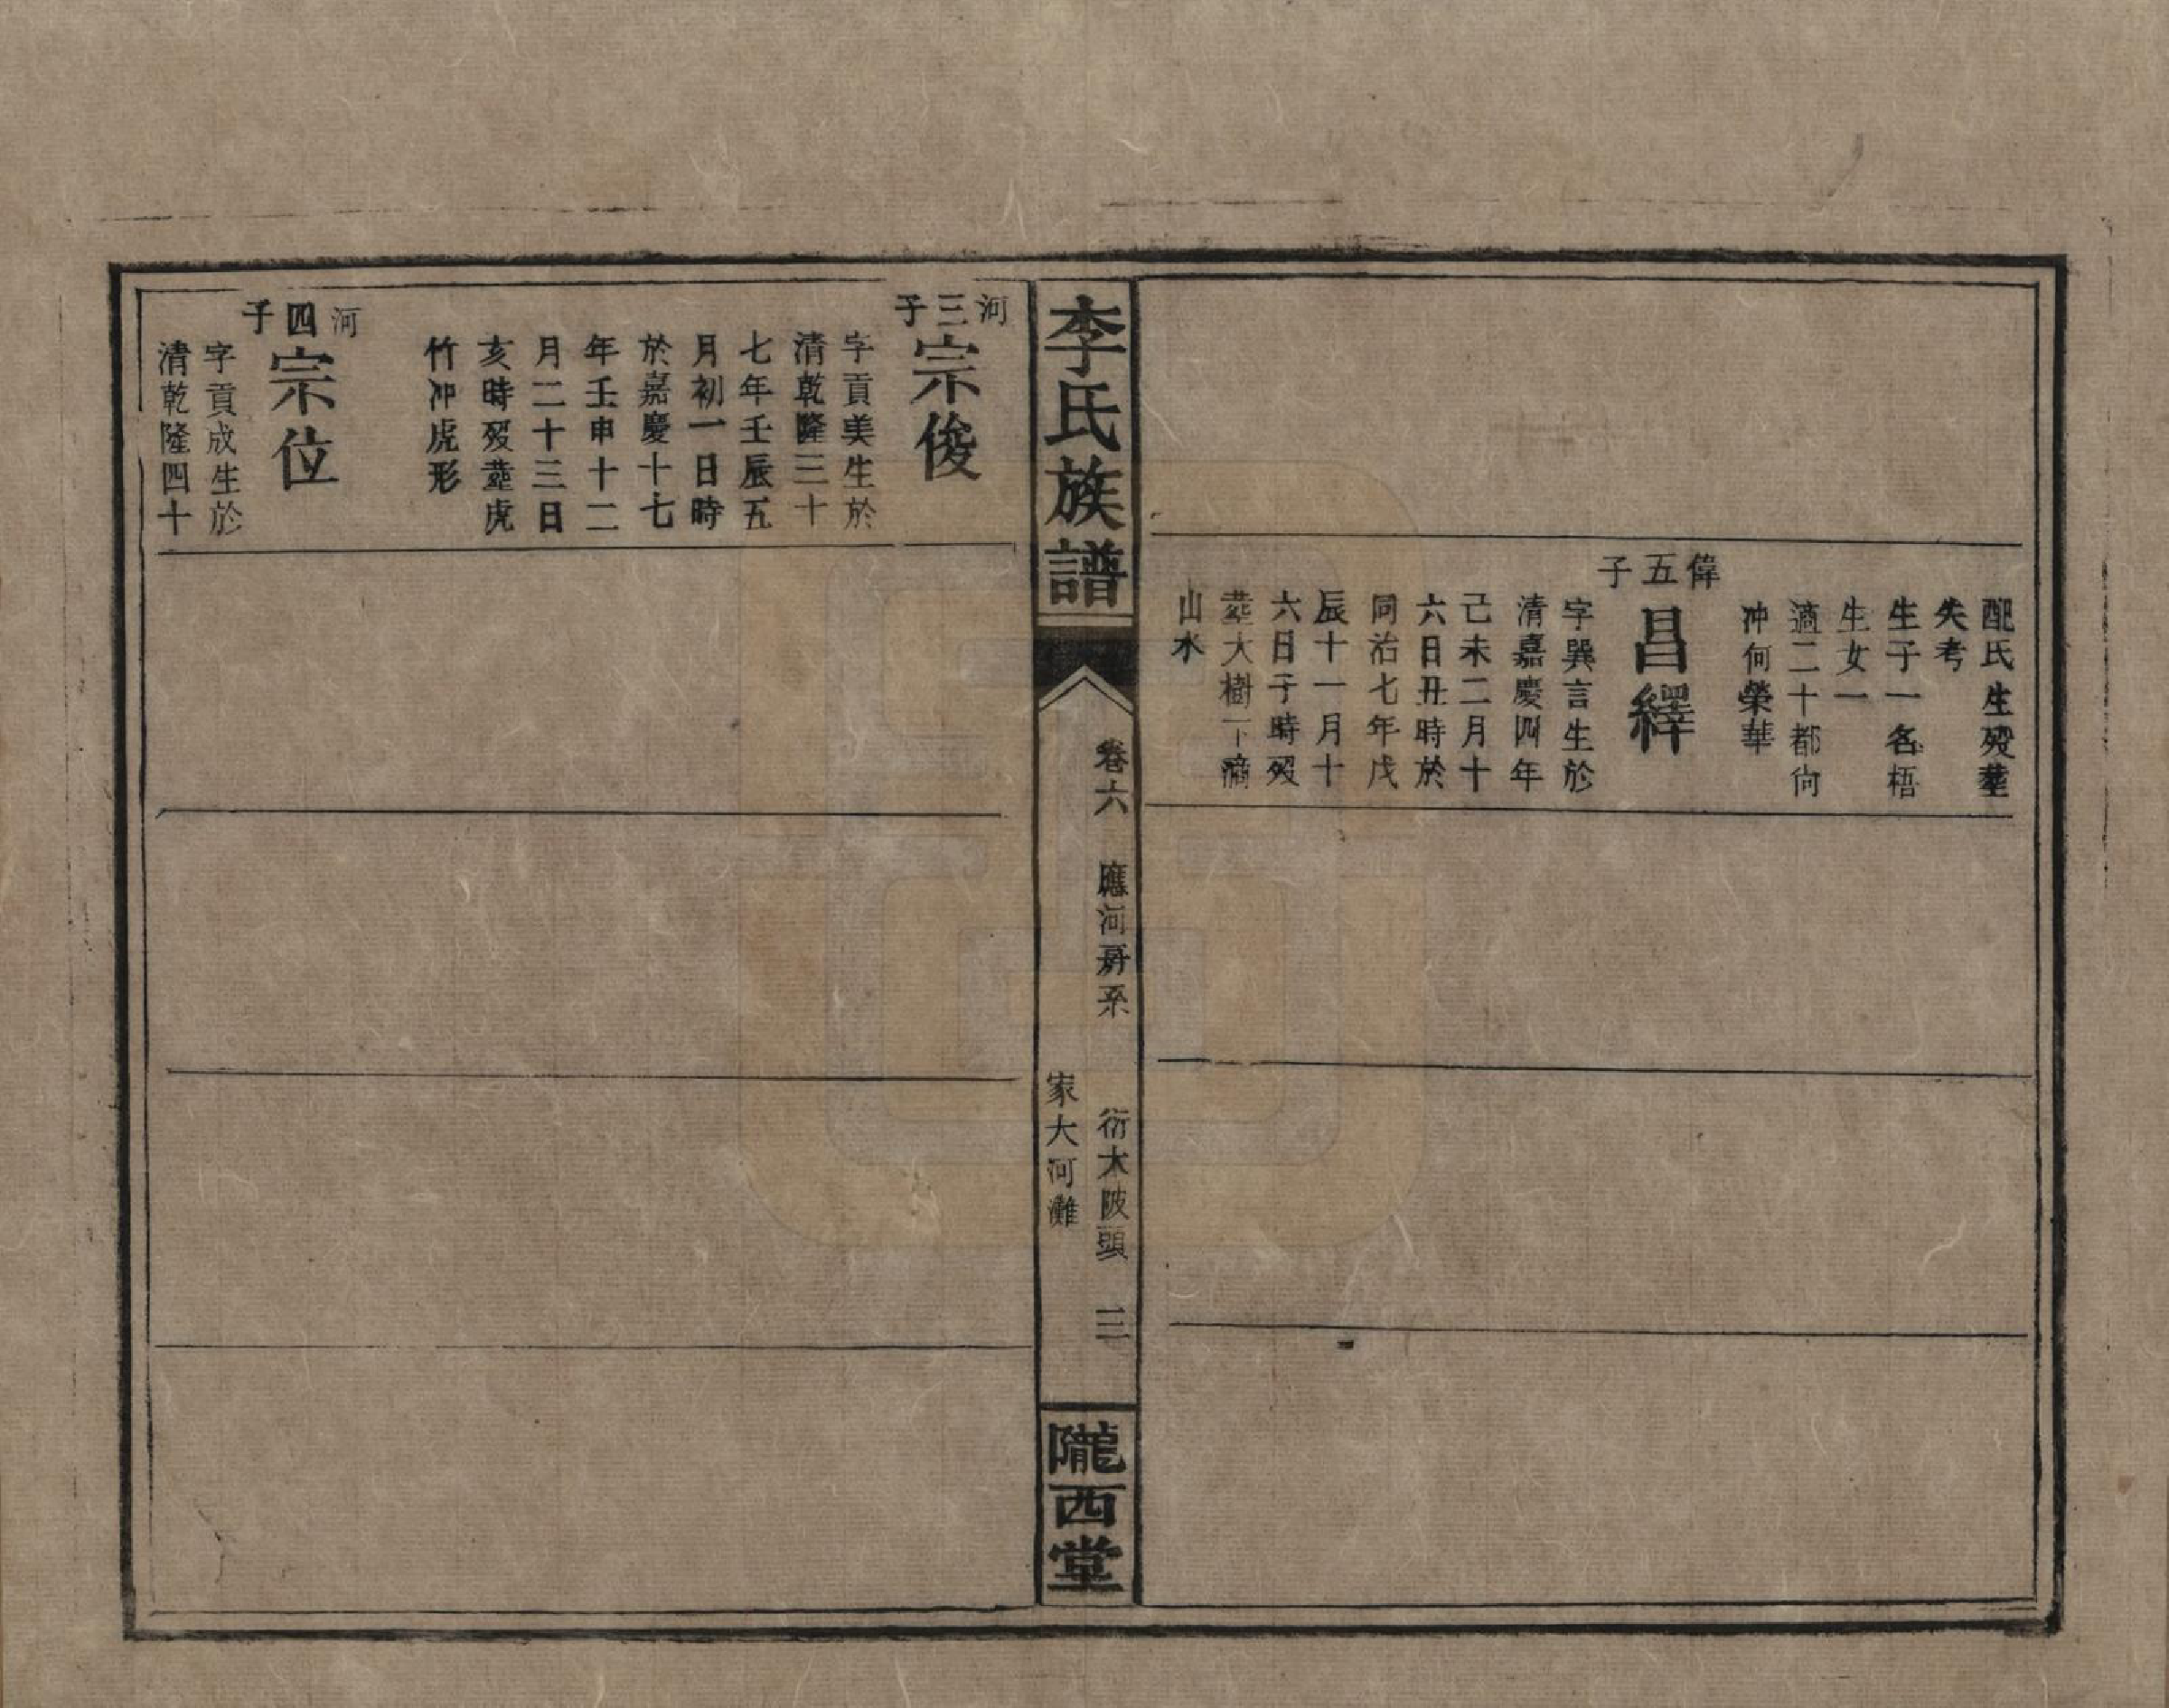 配氏生歿塟
失考
生子一名梧
生女一
適二十都向
冲何榮華
偉五子
昌繹
字巽言生於
清嘉慶四年
己未二月十
六日丑時於
同治七年戊
辰十一月十
六日子時歿
塟大樹下滴
山水
李氏族譜
卷六 應河房系 衍木陂頭 三
家大河灘
隴西堂
河三子
宗俊
字貢美生於
清乾隆三十
七年壬辰五
月初一日時
於嘉慶十七
年壬申十二
月二十三日
亥時歿塟虎
竹冲虎形
河四子
宗位
字貢成生於
清乾隆四十